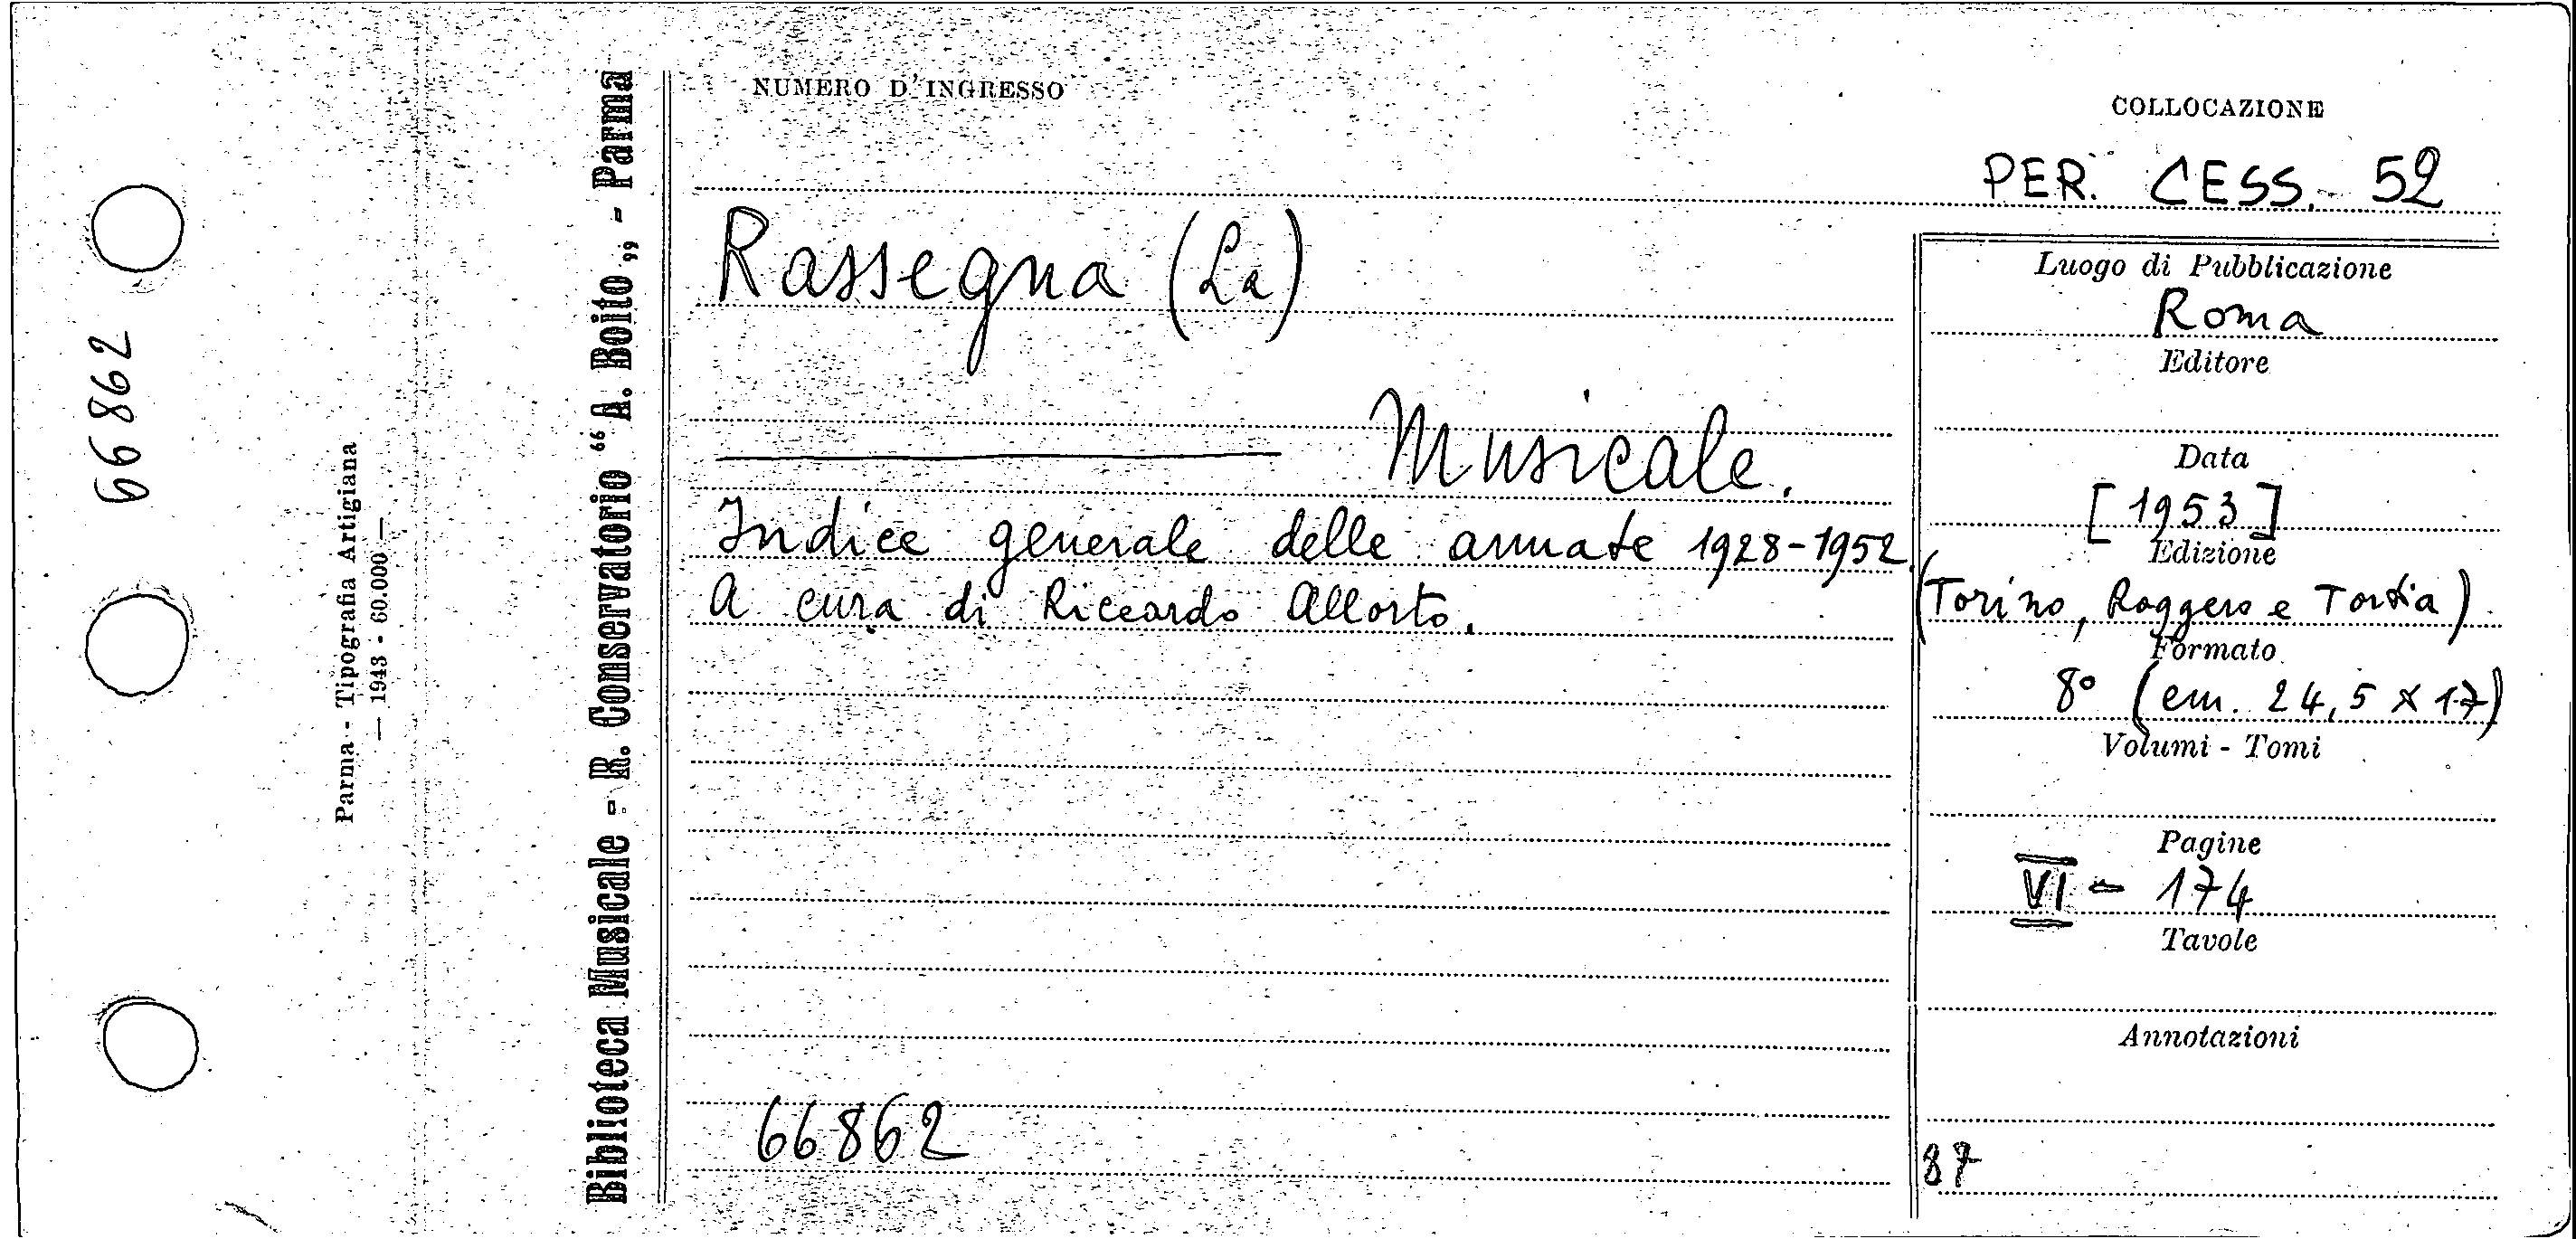 66862
Parma - Tipografia Artigiana
— 1943 - 60.000 —
Biblioteca Musicale - R. Conservatorio “A. Boito„ - Parma
NUMERO D'INGRESSO
COLLOCAZIONE
PER. CESS. 52
Rassegna (La)
Musicale.
Indice generale delle annate 1928-1952.
A cura di Riccardo Allorto.
66862
Luogo di Pubblicazione
Roma
Editore
Data
[1953]
Edizione
(Torino, Roggero e Tortia)
Formato
8° (cm. 24,5 x 17)
Volumi - Tomi
Pagine
VI - 174
Tavole
Annotazioni
87